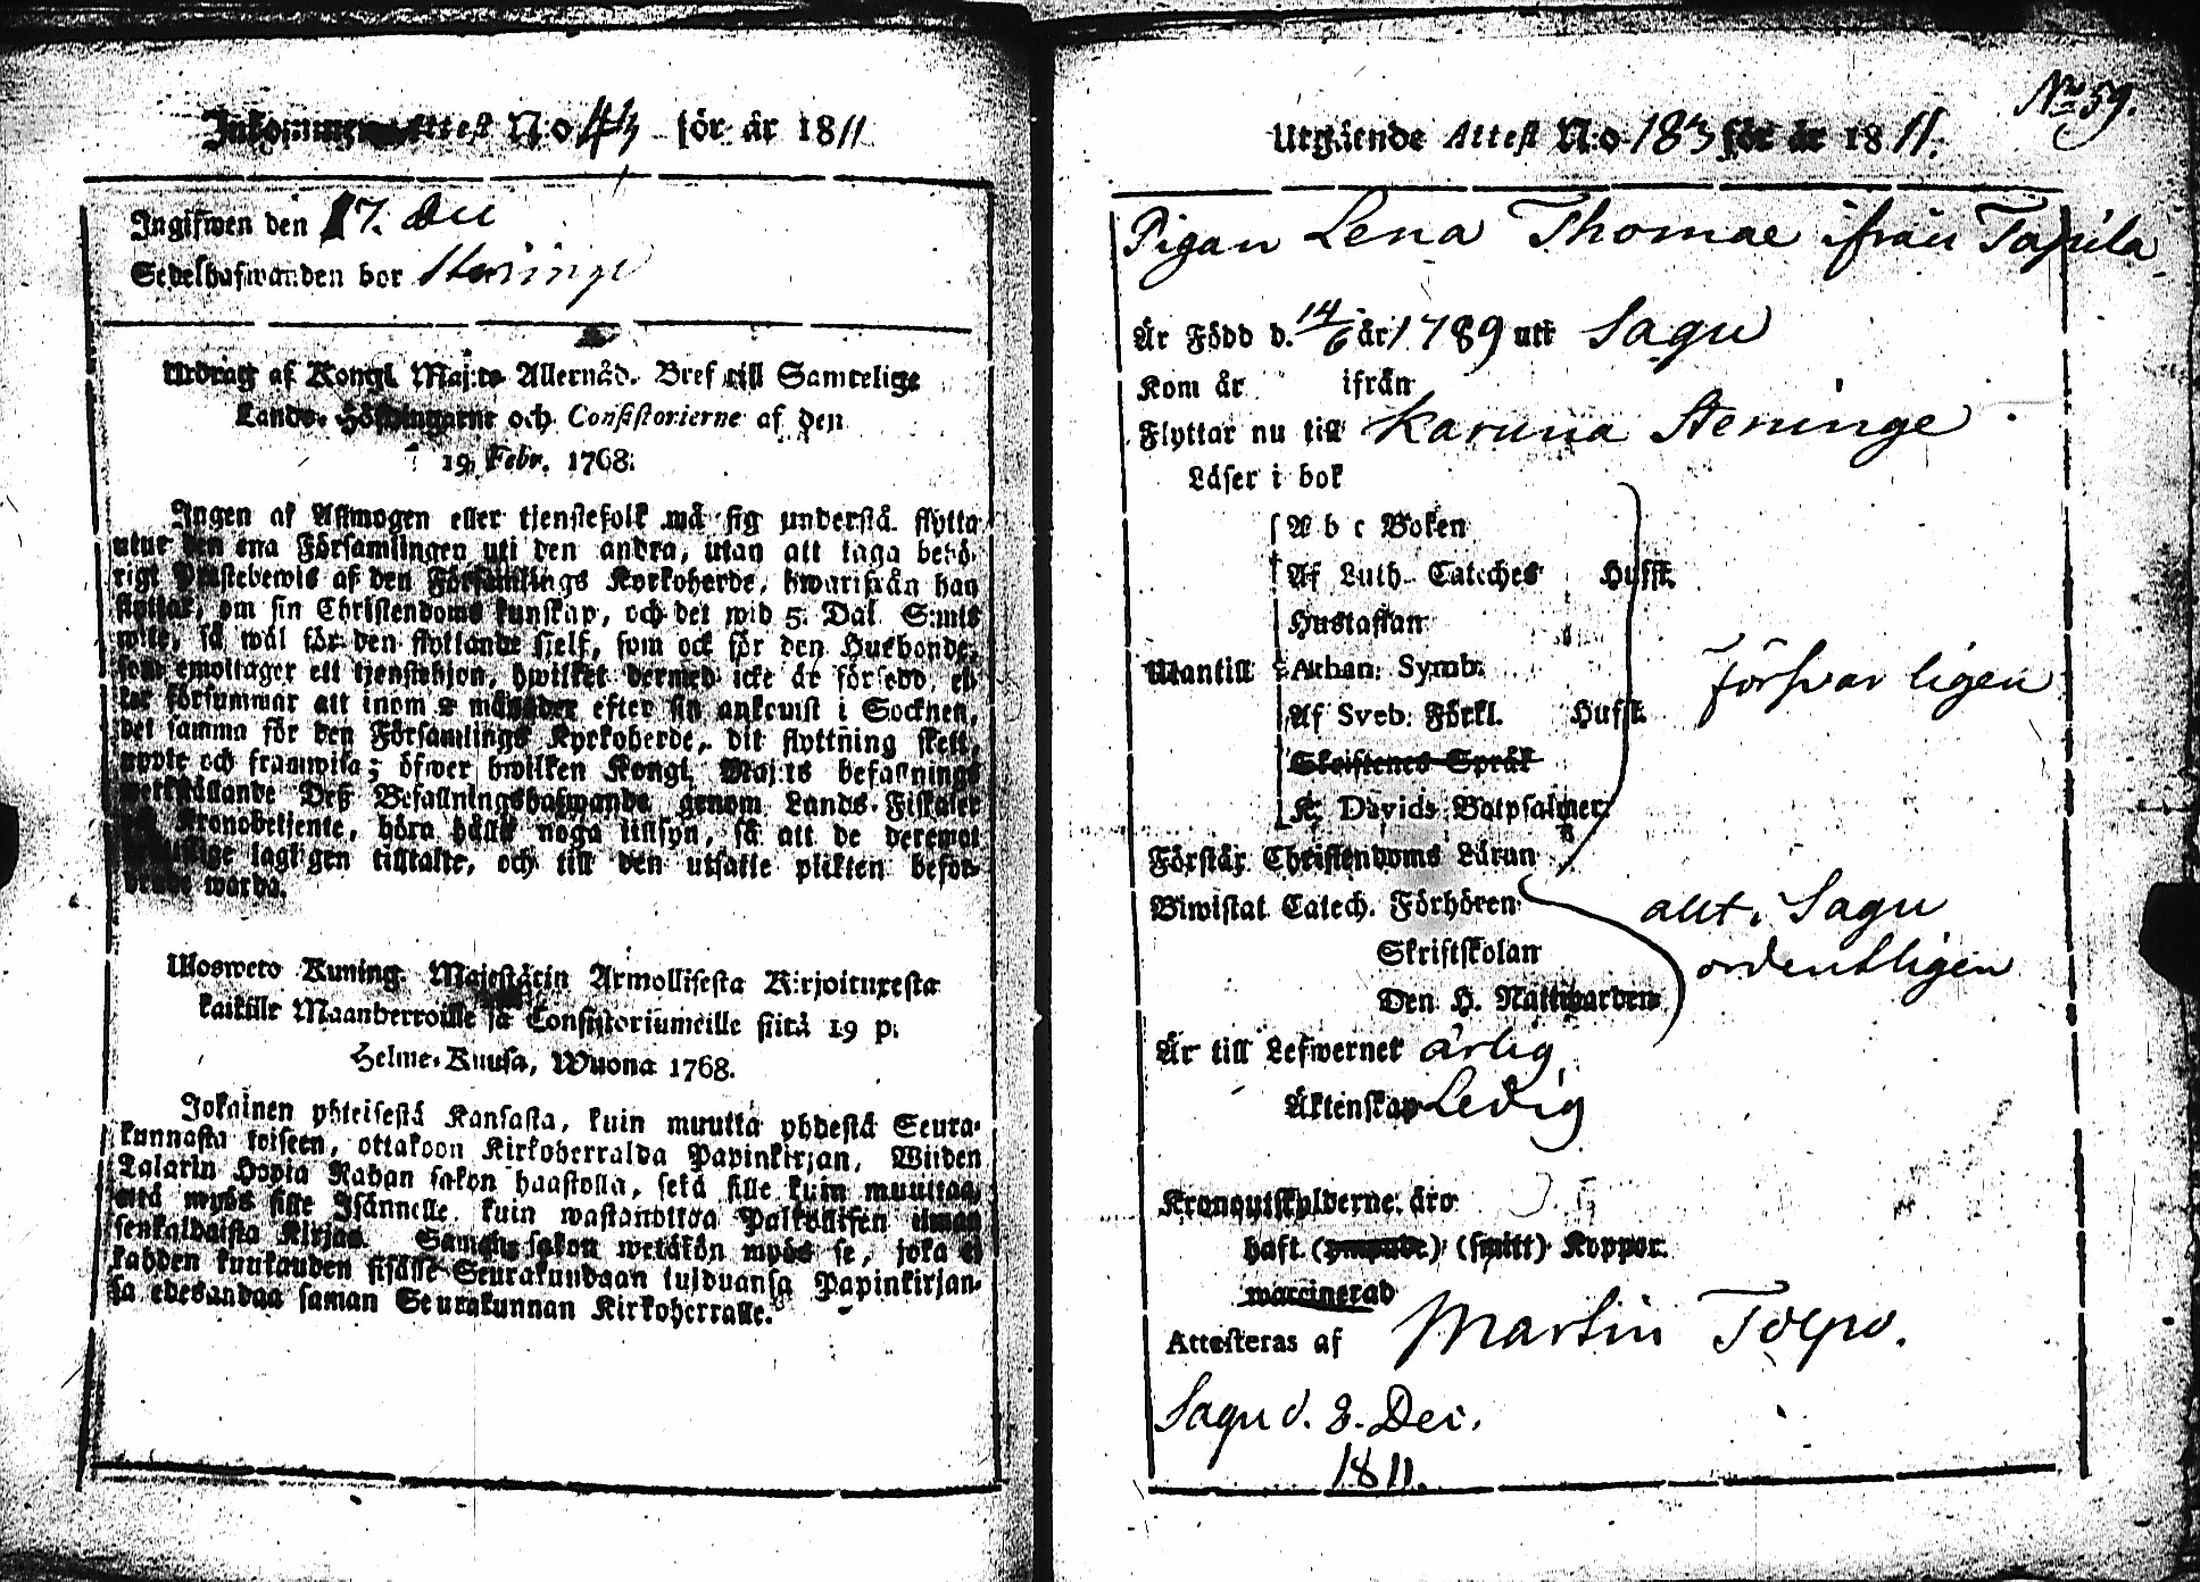 Inkommen Attest N:o 43 för år 1811
Ingifwen den 17. Dec
Sedelhafwanden bor Steninge
Utdrag af Kongl. Maj:ts Allernåd. Bref till Samtelige
Lands-Höfdingarne och Consistorierne af den
19 Febr. 1768.
Ingen af Allmogen eller tjenstefolk må sig understå flytta
utur den ena Församlingen uti den andra, utan att taga behö-
rigt Prästebewis af den Församlings Kyrkoherde, hwarifrån han
flyttar, om sin Christendoms kunskap, och det wid 5. Dal. S:mts
wite, så wäl för den flyttande sjelf, som ock för den Husbonde,
som emottager ett tjenstehjon, hwilket dermed icke är försedd, el-
ler försummar att inom 2 månader efter sin ankomst i Socknen,
det samma för den Församlings Kyrkoherde, dit flyttning skett,
uppte och framwisa; öfwer hwilken Kongl. Maj:ts befallnings
werkställande Deß Befallningshafwande genom Lands-Fiskaler
Kronobetjente, böra hålla noga tillsyn, så att de deremot
lagligen tilltalte, och till den utsatte plikten befor-
drade warda.
Ulosweto Kuning. Majestätin Armollisesta Kirjoituxesta
kaikille Maanherroille ja Consistoriumeille siitä 19 p.
Helme-Kuusa, Wuona 1768.
Jokainen yhteisestä Kansasta, kuin muutta yhdestä Seura-
kunnasta toiseen, ottakoon Kirkoherralda Papinkirjan, Wiiden
Talarin Hopia Rahan sakon haastolla, sekä sille kuin muuttaa,
että myös sille Isännelle, kuin wastanottaa Palkollisen ilman
senkaldaista Kirjaa. Saman sakon wetäkön myös se, joka ei
kahden kuukauden sisälle Seurakundaan tulduansa Papinkirjan-
sa edesandaa saman Seurakunnan Kirkoherralle.
No 59.
Utgående Attest N:o 183 för år 1811.
Pigan Lena Thomae ifrån Tapila
Är Född d. 14/6 år 1789 uti Sagu
Kom år ifrån
Flyttar nu till Karuna Steninge
Läser i bok
A b c Boken
Af Luth. Cateches Hufst.
Hustaflan
Utantill Athan. Symb.
Af Sveb. Förkl. Hufst.
försvarligen
Skriftenes Språk
K. Davids Botpsalmer
Förstår Christendoms Läran
Biwistat Catech. Förhören allt i Sagu
Skriftskolan ordentligen
Den H. Nattwarden
Är till Lefwernet ärlig
Äktenskap Ledig
Kronoutskylderne äro
haft (ympade) (smitt) Koppor.
waccinerad
Attesteras af Martin Tolpo.
Sagu d. 8. Dec.
1811.